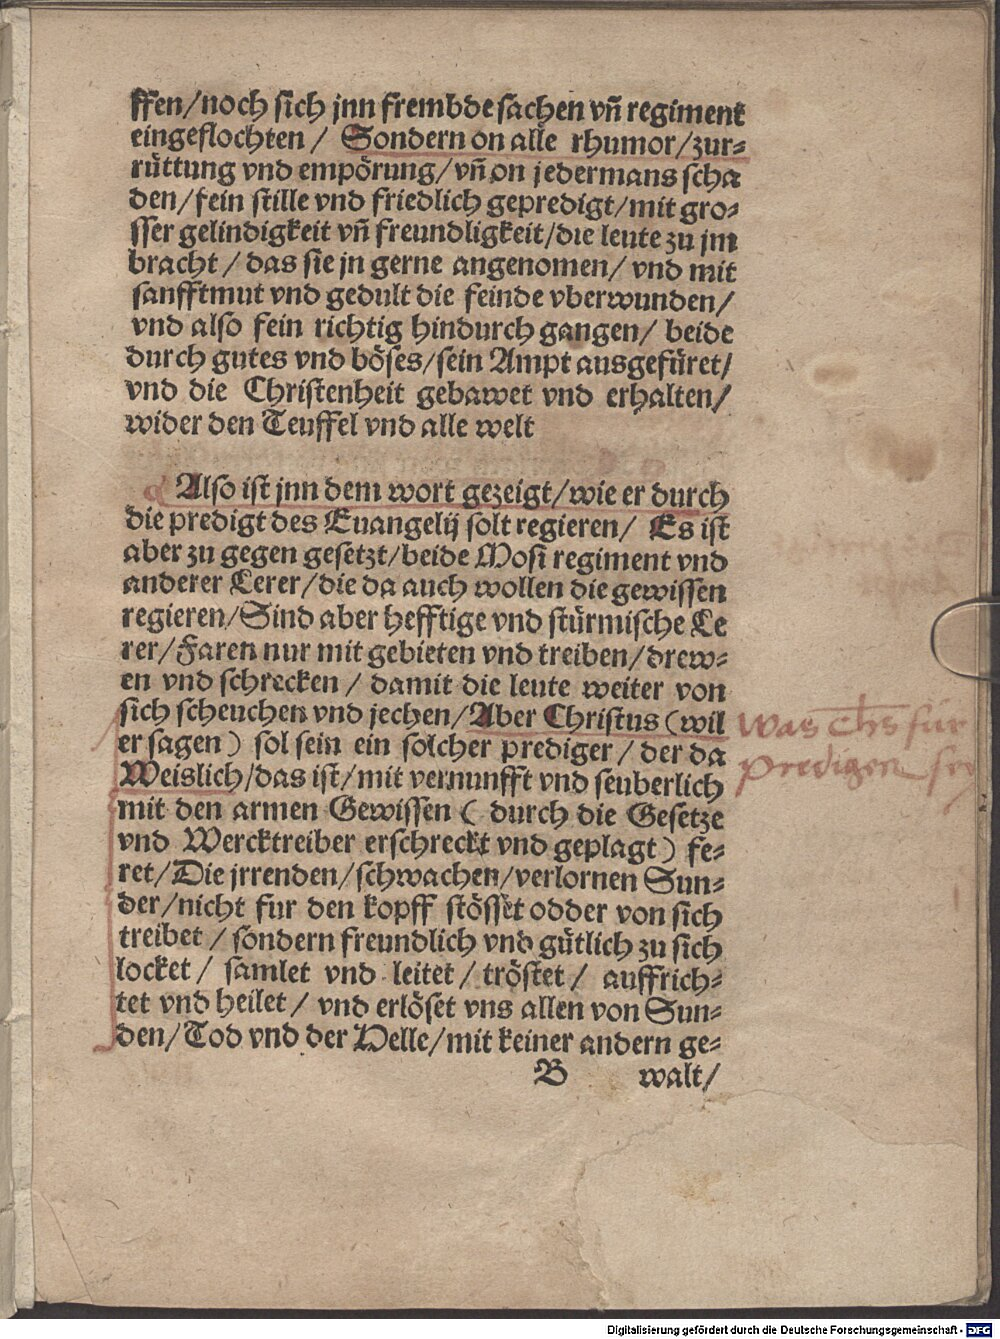 ffen/noch sich jnn frembde sachen vñ regiment
eingeflochten / Sondern on alle rhumor/zur⸗
rüttung vnd empörung/vñ on jedermans scha
den/fein stille vnd friedlich gepredigt/mit gro⸗
sser gelindigkeit vñ freundligkeit/die leute zu jm
bracht / das sie jn gerne angenomen/ vnd mit
sanfftmut vnd gedult die feinde vberwunden/
vnd also fein richtig hindurch gangen/ beide
durch gutes vnd böses/sein Ampt ausgefüret/
vnd die Christenheit gebawet vnd erhalten/
wider den Teuffel vnd alle welt
Also ist jnn dem wort gezeigt/wie er durch
die predigt des Euangelij solt regieren/ Es ist
aber zu gegen gesetzt/beide Mosi regiment vnd
anderer Lerer/die da auch wollen die gewissen
regieren/Sind aber hefftige vnd stürmische Le
rer/Faren nur mit gebieten vnd treiben/drew⸗
en vnd schrecken / damit die leute weiter von
sich scheuchen vnd jechen/Aber Christus (wil
er sagen) sol sein ein solcher prediger / der da
Weislich/das ist/mit vernunfft vnd seuberlich
mit den armen Gewissen ( durch die Gesetze
vnd Wercktreiber erschreckt vnd geplagt) fe⸗
ret/Die jrrenden/schwachen/verlornen Sun⸗
der/nicht fur den kopff stösset odder von sich
treibet / sondern freundlich vnd gütlich zu sich
locket / samlet vnd leitet / tröstet / auffrich⸗
tet vnd heilet / vnd erlöset vns allen von Sun⸗
den/Tod vnd der Helle/mit keiner andern ge⸗
B walt/
Was Chs für
Prediger sey
Digitalisierung gefördert durch die Deutsche Forschungsgemeinschaft - DFG